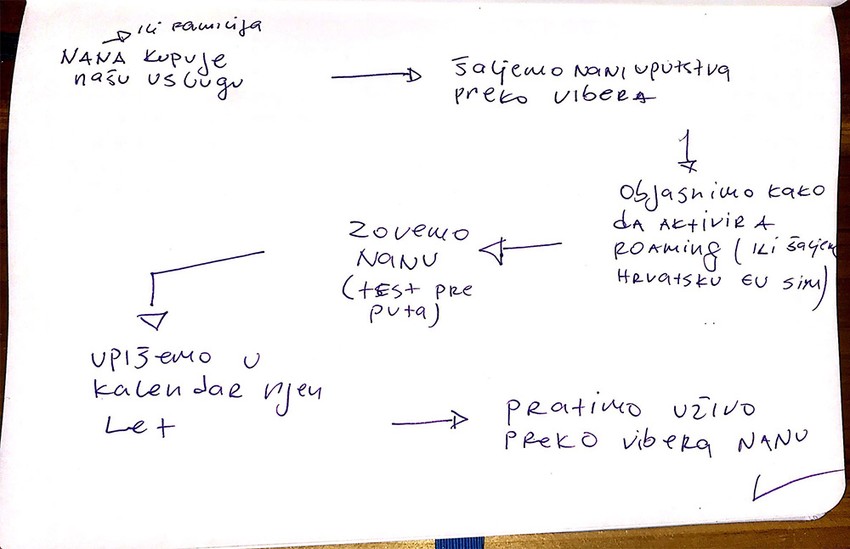 ili familija
NANA kupuje
našu uslugu
šaljemo NANI uputstva
preko vibera
Objasnimo kako
da aktivira
ROAMING (ili šaljem
Hrvatsku EU sim)
Zovemo
NANU
(test pre
puta)
upišemo u
kalendar njen
Let
pratimo uživo
preko vibera NANU